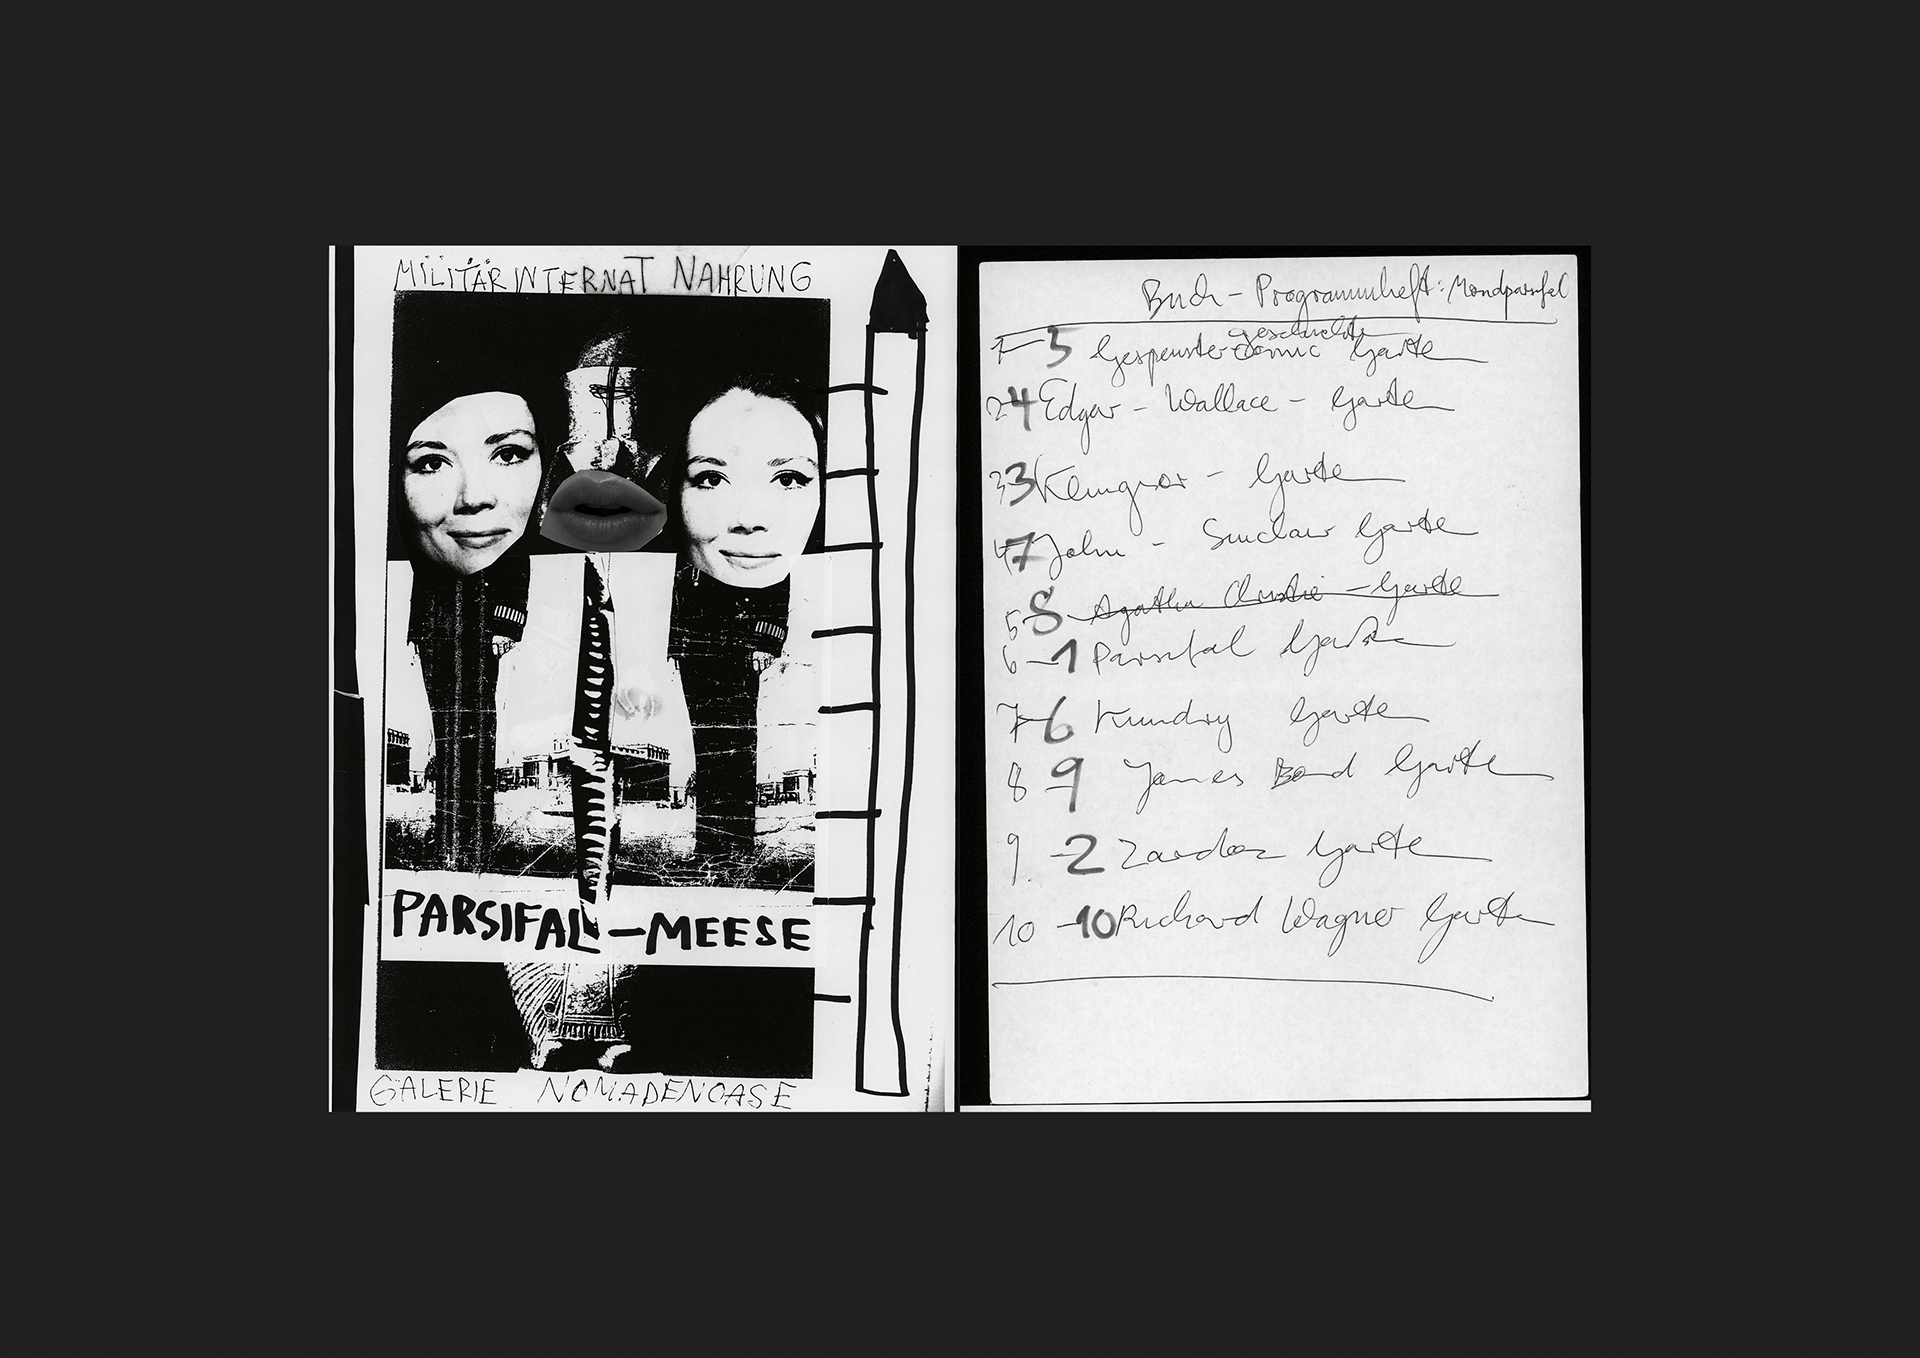 MILITÄRINTERNAT NAHRUNG
PARSIFAL-MEESE
GALERIE NOMADENOASE
Buch - Programmheft: Mondparsifal
geschichte
1 5 Gespenster-comic Garten
2 4 Edgar - Wallace - Garten
3 3 Klingsor - Garten
4 7 John - Sinclair Garten
5 8 Agatha Christie - Garten
6 - 1 Parsifal Garten
7 - 6 Kundry Garten
8 9 James Bond Garten
9. - 2 Zardoz Garten
10 - 10 Richard Wagner Garten